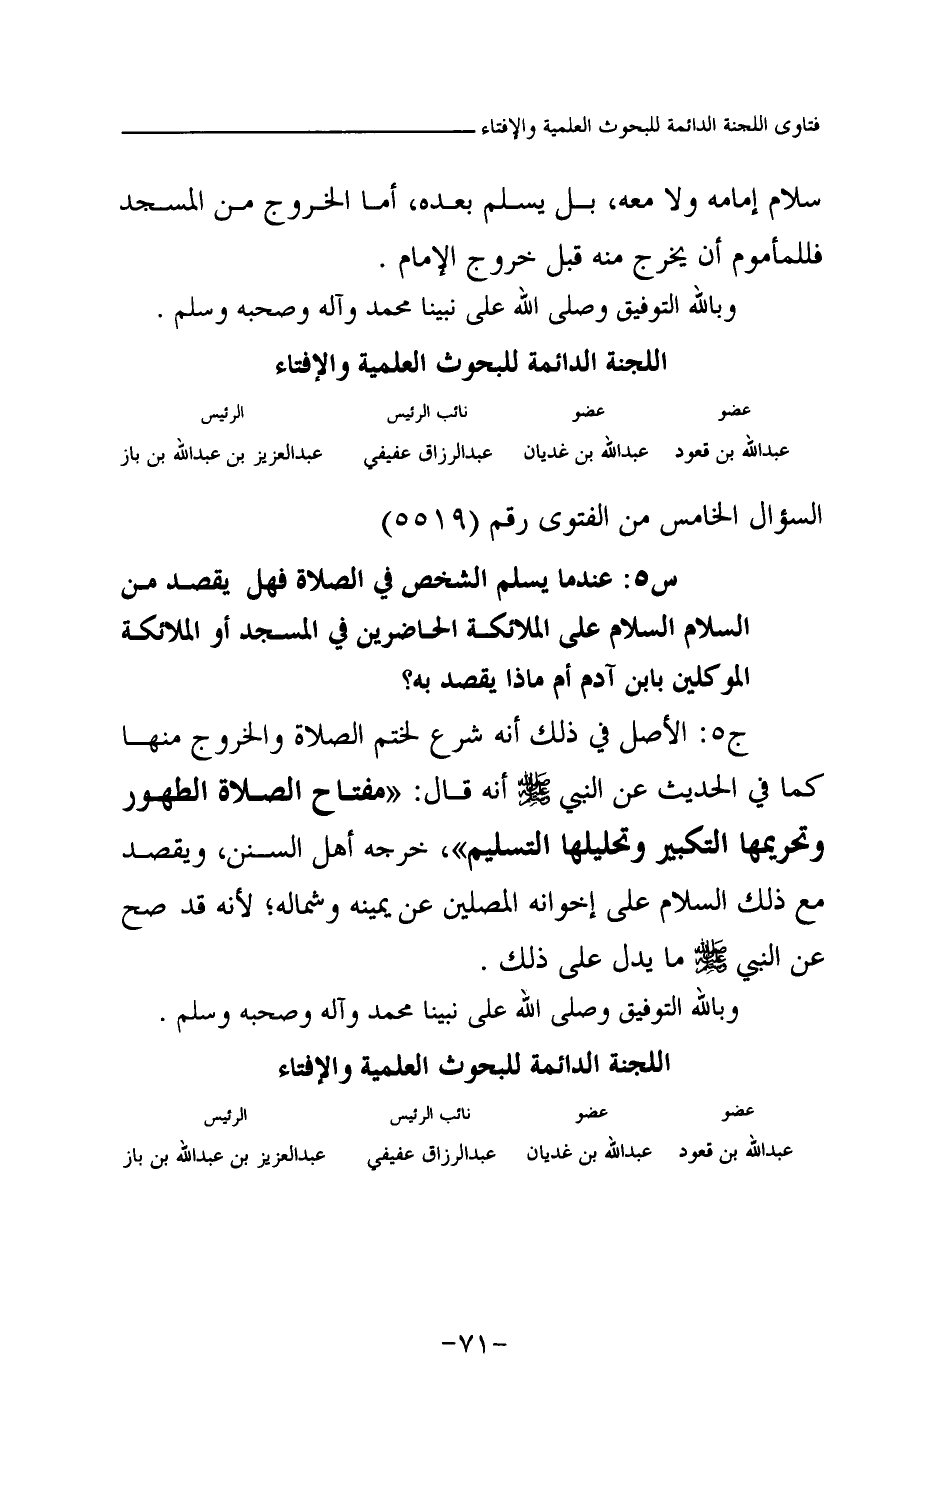 فتاوى اللجنة الدائمة للبحوث العلمية والإفتاء
سلام إمامه ولا معه، بل يسلم بعده، أما الخروج من المسجد
فللمأموم أن يخرج منه قبل خروج الإمام .
وبالله التوفيق وصلى الله على نبينا محمد وآله وصحبه وسلم .
اللجنة الدائمة للبحوث العلمية والإفتاء
عضو عضو نائب الرئيس الرئيس
عبدالله بن قعود عبدالله بن غديان عبدالرزاق عفيفي عبدالعزيز بن عبدالله بن باز
السؤال الخامس من الفتوى رقم (٥٥١٩)
س٥: عندما يسلم الشخص في الصلاة فهل يقصد من
السلام السلام على الملائكة الحاضرين في المسجد أو الملائكة
الموكلين بابن آدم أم ماذا يقصد به؟
ج٥: الأصل في ذلك أنه شرع لختم الصلاة والخروج منها
كما في الحديث عن النبي ﷺ أنه قال: «مفتاح الصلاة الطهور
وتحريمها التكبير وتحليلها التسليم»، خرجه أهل السنن، ويقصد
مع ذلك السلام على إخوانه المصلين عن يمينه وشماله؛ لأنه قد صح
عن النبي ﷺ ما يدل على ذلك .
وبالله التوفيق وصلى الله على نبينا محمد وآله وصحبه وسلم .
اللجنة الدائمة للبحوث العلمية والإفتاء
عضو عضو نائب الرئيس الرئيس
عبدالله بن قعود عبدالله بن غديان عبدالرزاق عفيفي عبدالعزيز بن عبدالله بن باز
-٧١-